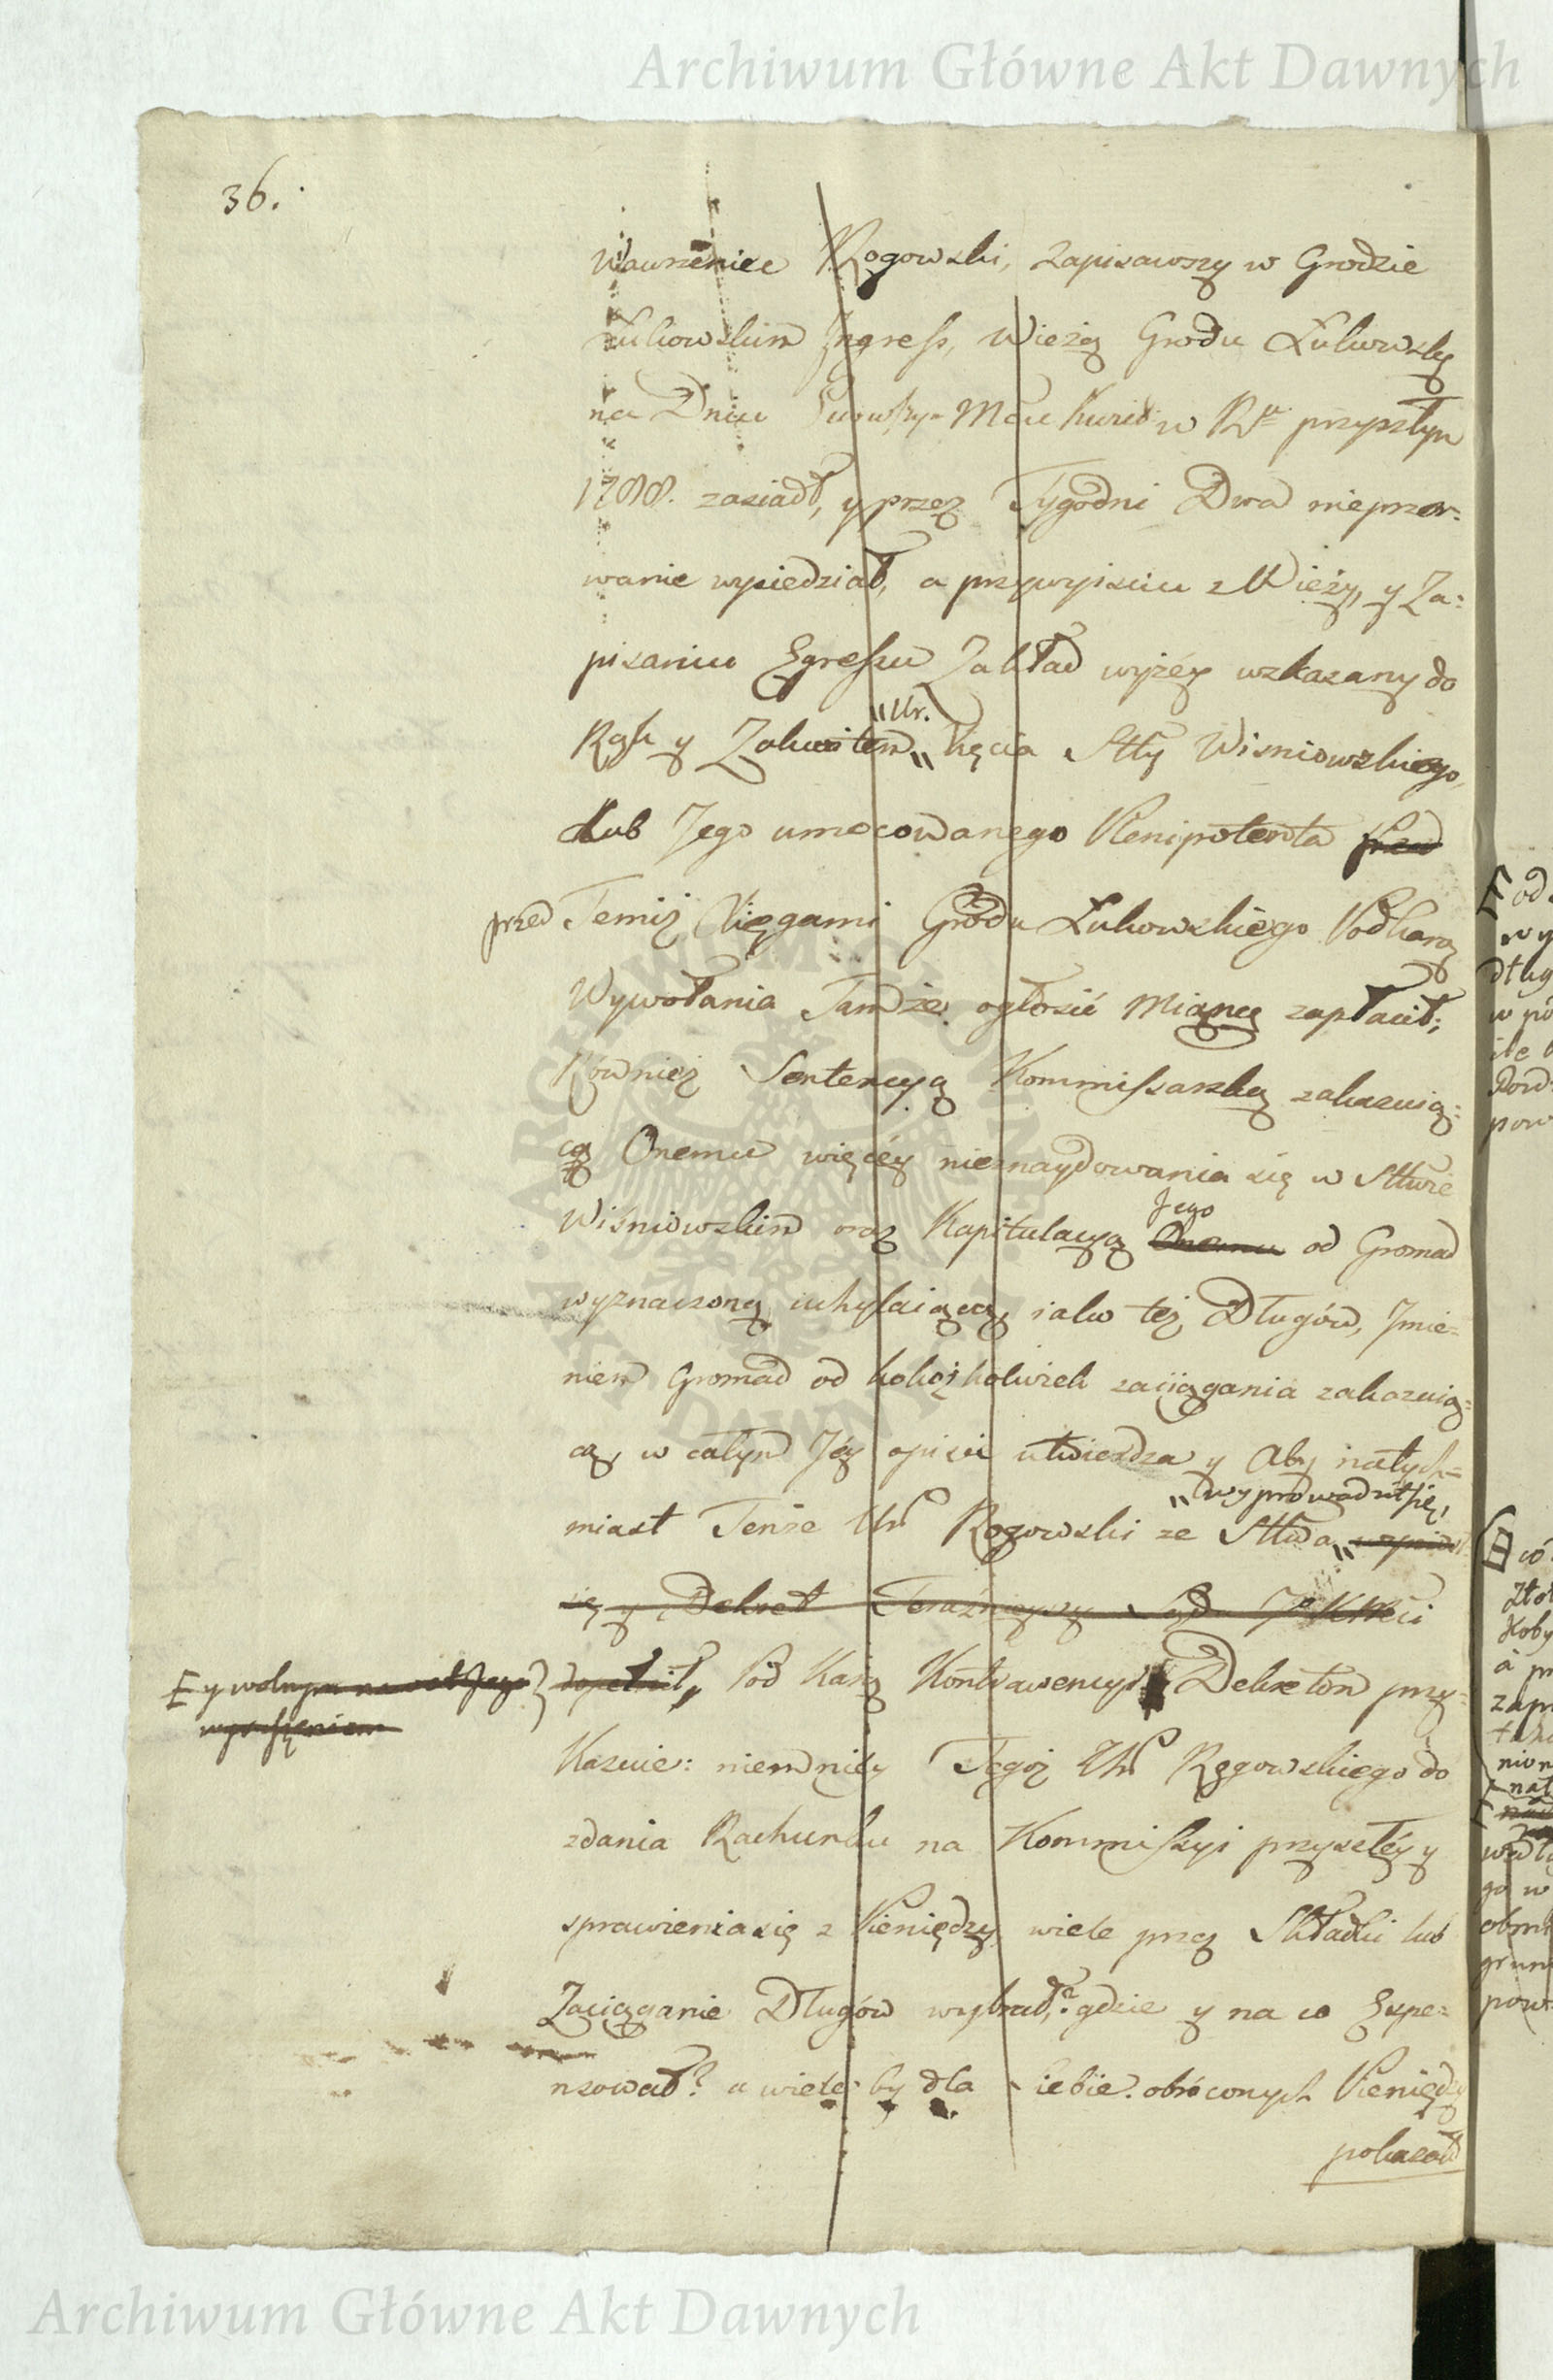 Archiwum Główne Akt Dawnych
36.
Wawrzeniec Rogowski, zapisawszy w Grodzie
Łukowskim Ingress, Wieżą Grodu Łukowską
na Dniu w Rku przyszłym
1788. zasiadł, y przez Tygodni Dwa nieprzer:
wanie wysiedział, a przy wyisciu z Wieży, y Za:
pisaniu Egressu Zakład wyżéy wskazany do
Rąk y Zakwitem „Ur. Kęcia Stty Wisniowskiego,
lub Jego umocowanego Plenipotenta przed
przed Temiż Xięgami Grodu Łukowskiego Pod karą
Wywołania Tamże ogłosić Mianą zapłacił;
Również Sentencyą Kommissarską zakazuią:
cą Onemu więcéy nieznaydowania się w Sttwie
Jego
Wiśniowskim oraz Kapitulacyą Onemu od Gromad
wyznaczoną uchylaiącą, iako też Długów, Jmie=
niem Gromad od kohożkolwiek zaciągania zakazuią=
cą, w całym Jéy opisie utwierdza y Aby natych=
„wyprowadził się,
miast Tenże Ur Rogowski ze Sttwa„
się y Dekret Teraźnieyszy Sądu JKMci
E y wolnym
dopełnił, Pod Karą Kontrawencyi Dekretom przy=
Kazuie: niemniéy Tegoż Ur Rogowskiego do
zdania Rachunku na Kommissyi przyszłéy y
sprawienia się z Pieniędzy wiele przez Składki lub
Zaciąganie Długów wybrał,? gdzie y na co Expe=
nsował? a wiele by dla siebie obróconych Pieniędzy
pokazał
E od
wy
dług
ile
pow
zapr
pow
Archiwum Główne Akt Dawnych